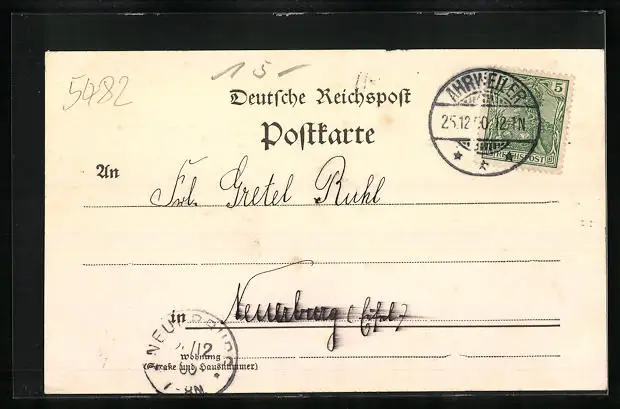 5482
15-
Deutsche Reichspost
Postkarte
AHRWEILER
25.12.00. 12-1N
5
REICHSPOST
An
Frl. Gretel Ruhl
in Neuerburg (Eifel)
NEUERBURG
/12
00
8N
Wohnung
(Straße und Hausnummer)